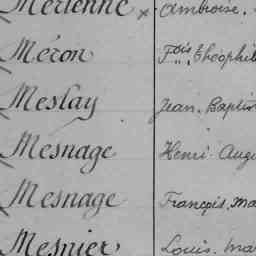 Merienne × Ambroise.
Méron Fois Théophil
Meslay Jean Baptis
Mesnage Henri Augu
Mesnage François Ma
Mesnier Louis Ma